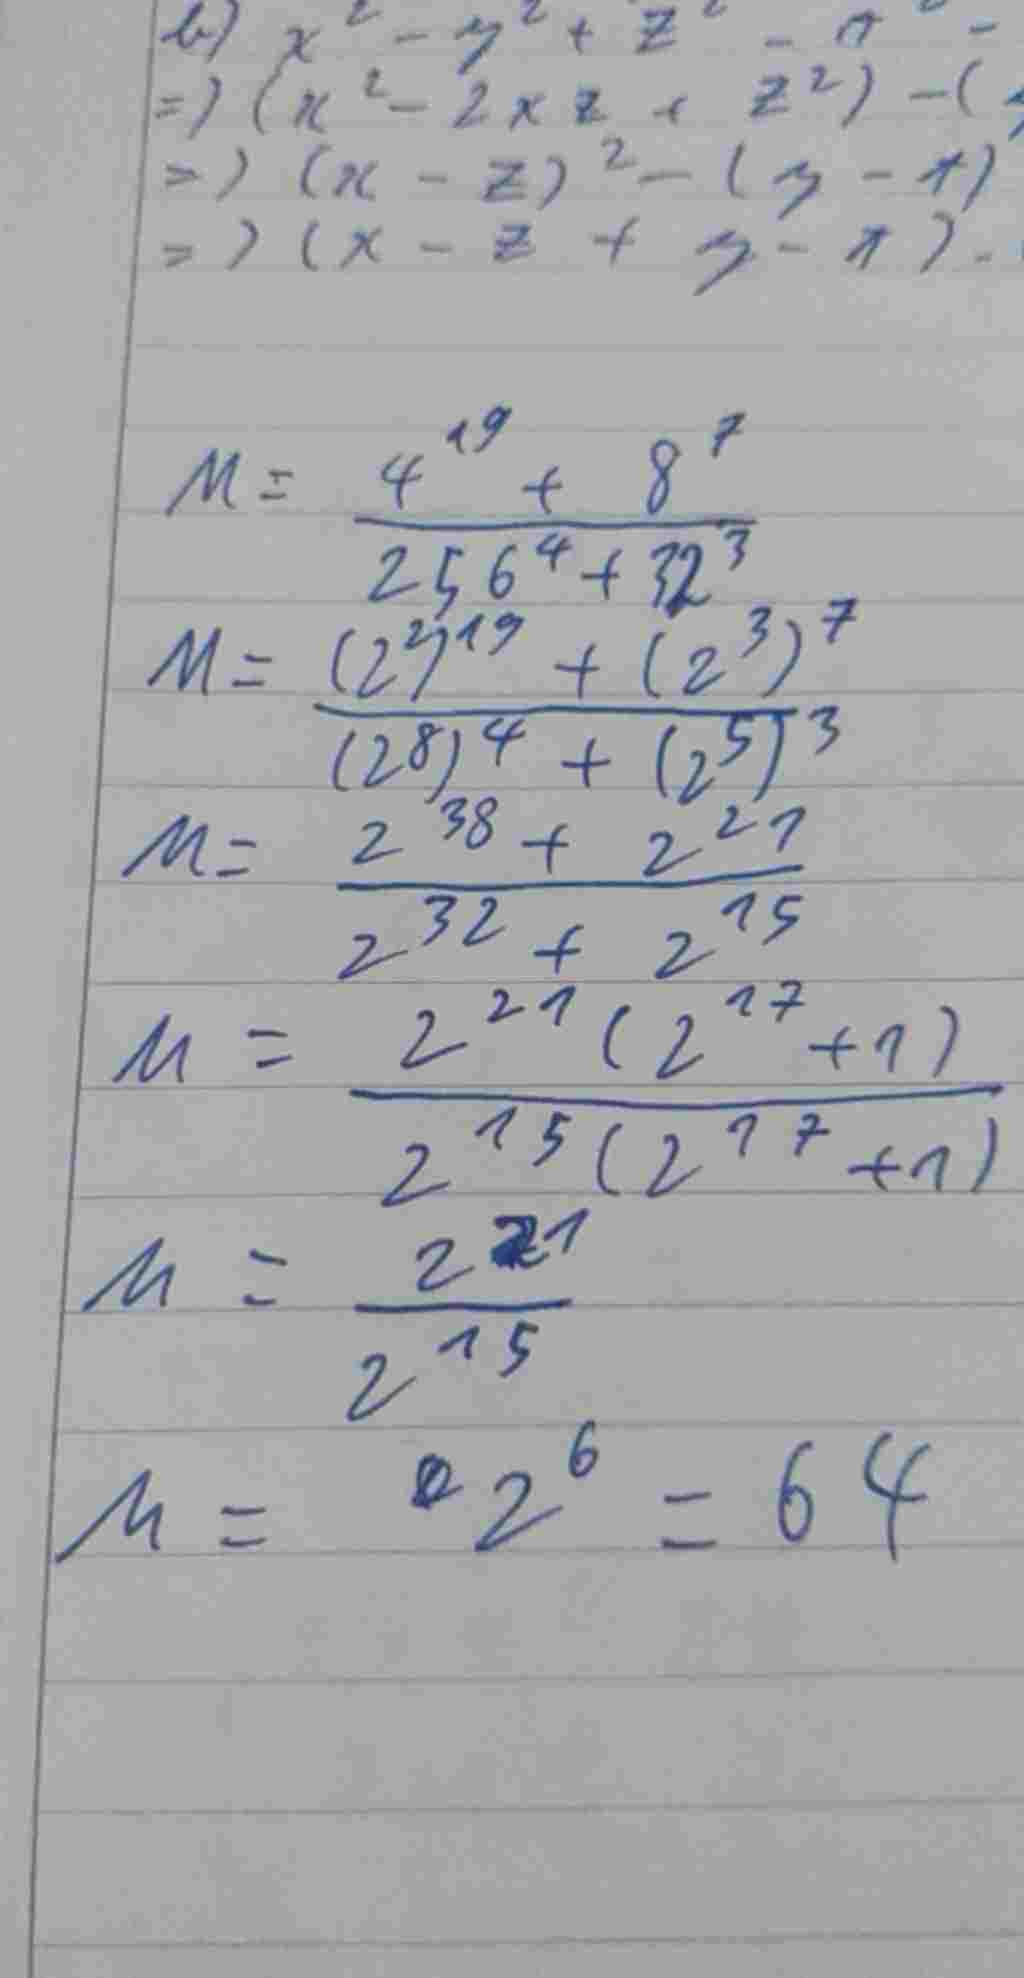 b) x² - y² + z² - t² -
=) (x² - 2xz + z²) - (
=) (x - z)² - (y - t)
=) (x - z + y - t) .
M = 4¹⁹ + 8⁷ / 256⁴ + 32³
M = (2²)¹⁹ + (2³)⁷ / (2⁸)⁴ + (2⁵)³
M = 2³⁸ + 2²¹ / 2³² + 2¹⁵
M = 2²¹ (2¹⁷ + 1) / 2¹⁵ (2¹⁷ + 1)
M = 2²¹ / 2¹⁵
M = 2⁶ = 64